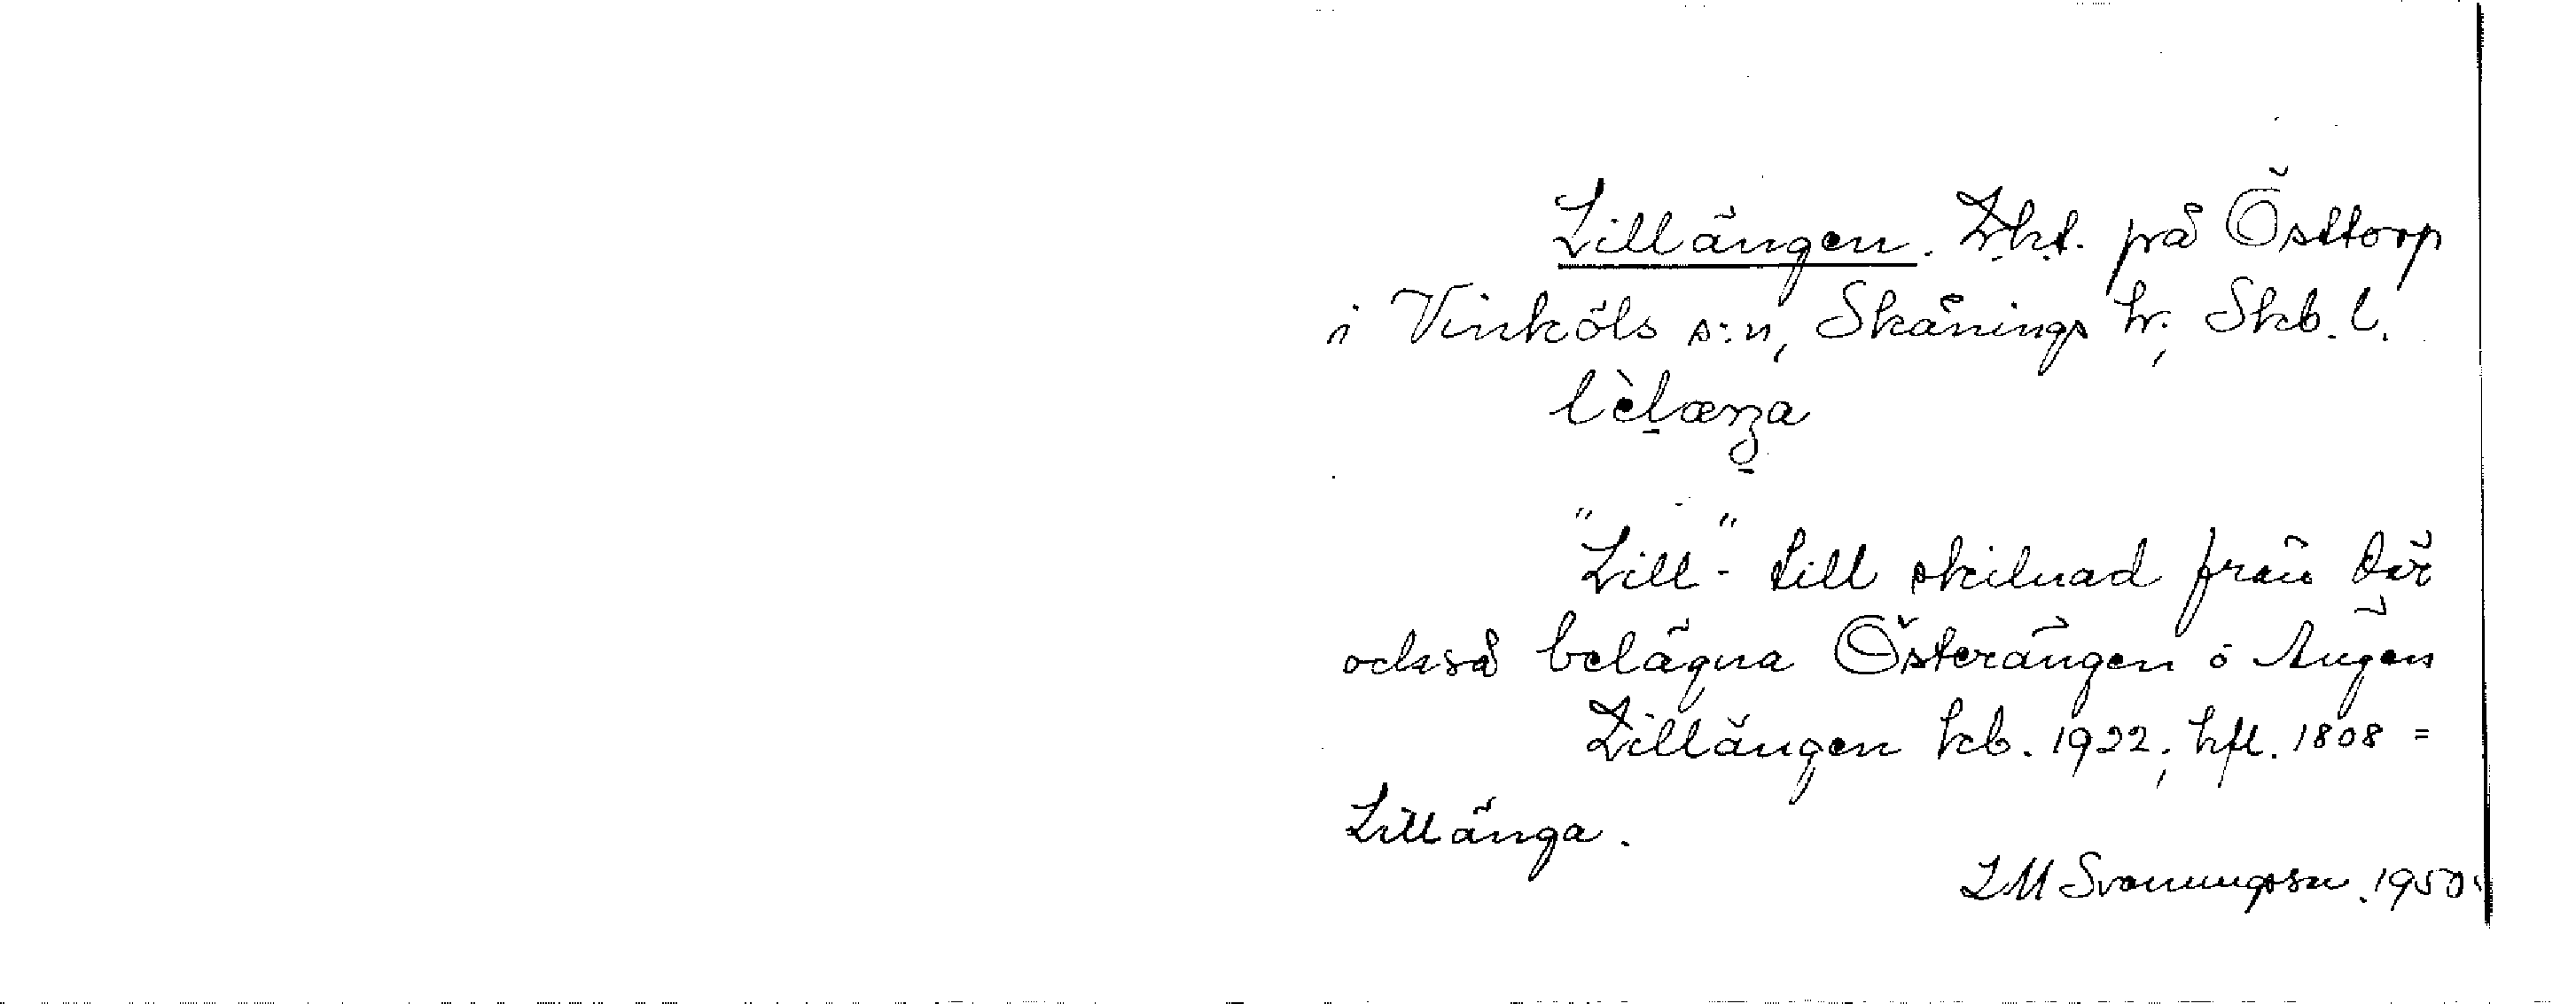 Lillängen. Lht. på Östtorp
i Vinköls s:n, Skånings hr; Skb. l.
lèlænza
"Lill-" till skilnad från där
också belägna Österängen o Ängen
Lillängen kb. 1922; hfl. 1808 =
Lillänga.
LM Svanungsson. 1950.